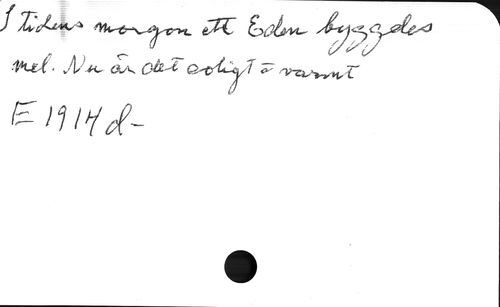 I tidens morgon ett Eden byggdes
mel. Nu är det soligt o varmt
E 1914 d-